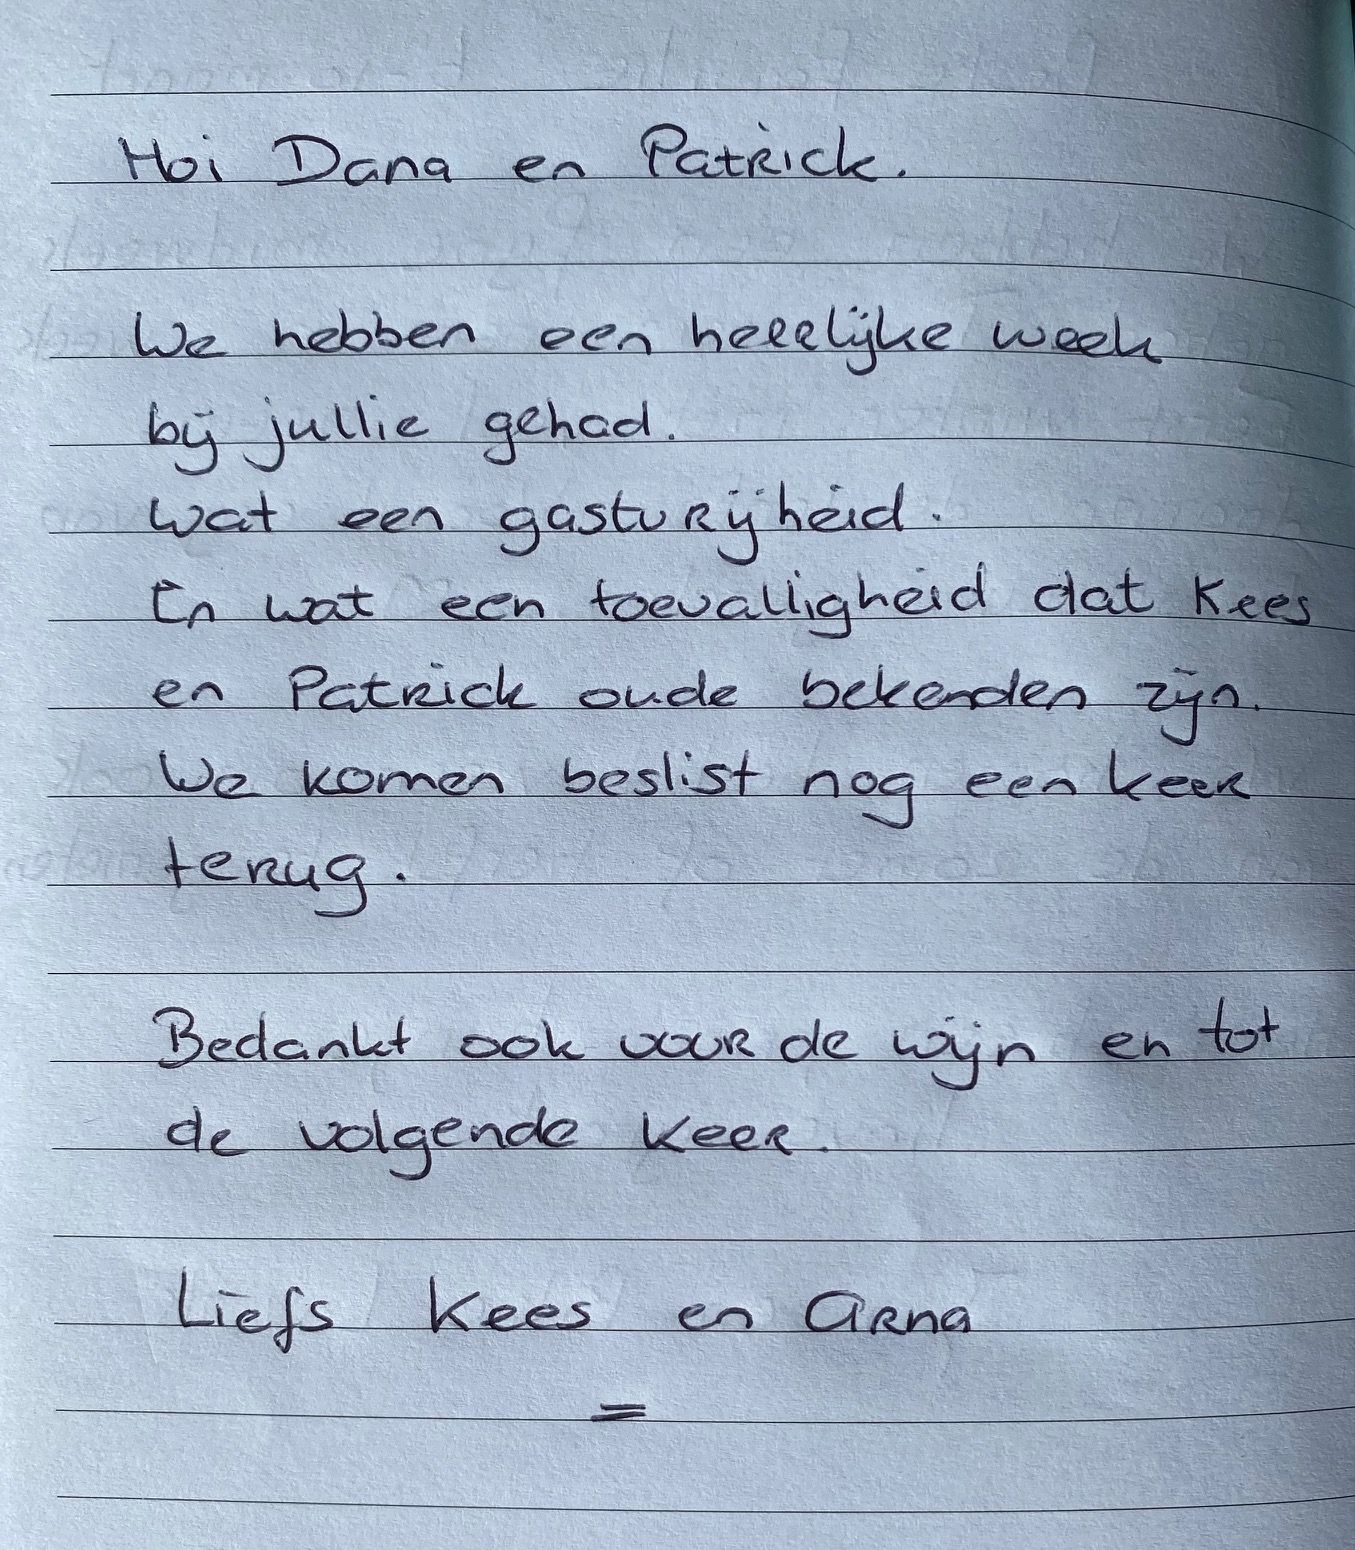 Hoi Dana en Patrick.
We hebben een heerlijke week
bij jullie gehad.
Wat een gastvrijheid.
En wat een toevalligheid dat Kees
en Patrick oude bekenden zijn.
We komen beslist nog een keer
terug.
Bedankt ook voor de wijn en tot
de volgende keer.
Liefs Kees en Arna